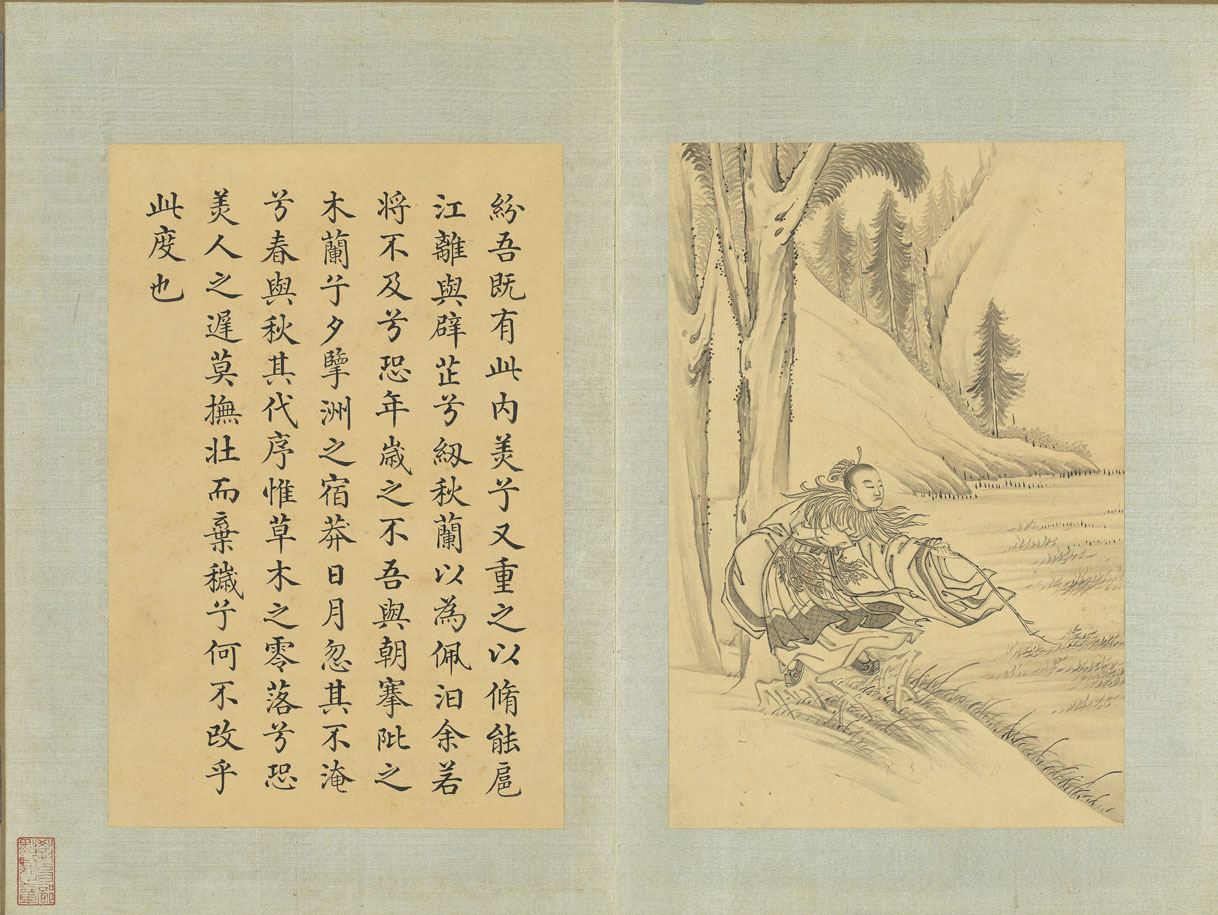 紛吾既有此内羙兮又重之以脩能扈
江離與辟芷兮紉秋蘭以為佩汩余若
将不及兮恐年歳之不吾與朝搴阰之
木蘭兮夕擥洲之宿莽日月忽其不淹
兮春與秋其代序惟草木之零落兮恐
羙人之遲莫撫壮而棄穢兮何不改乎
此度也